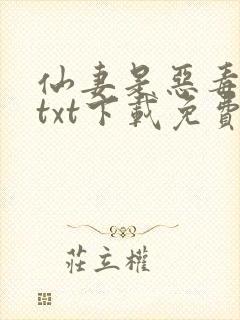 仙妻是惡毒
txt下載免費
莊立權